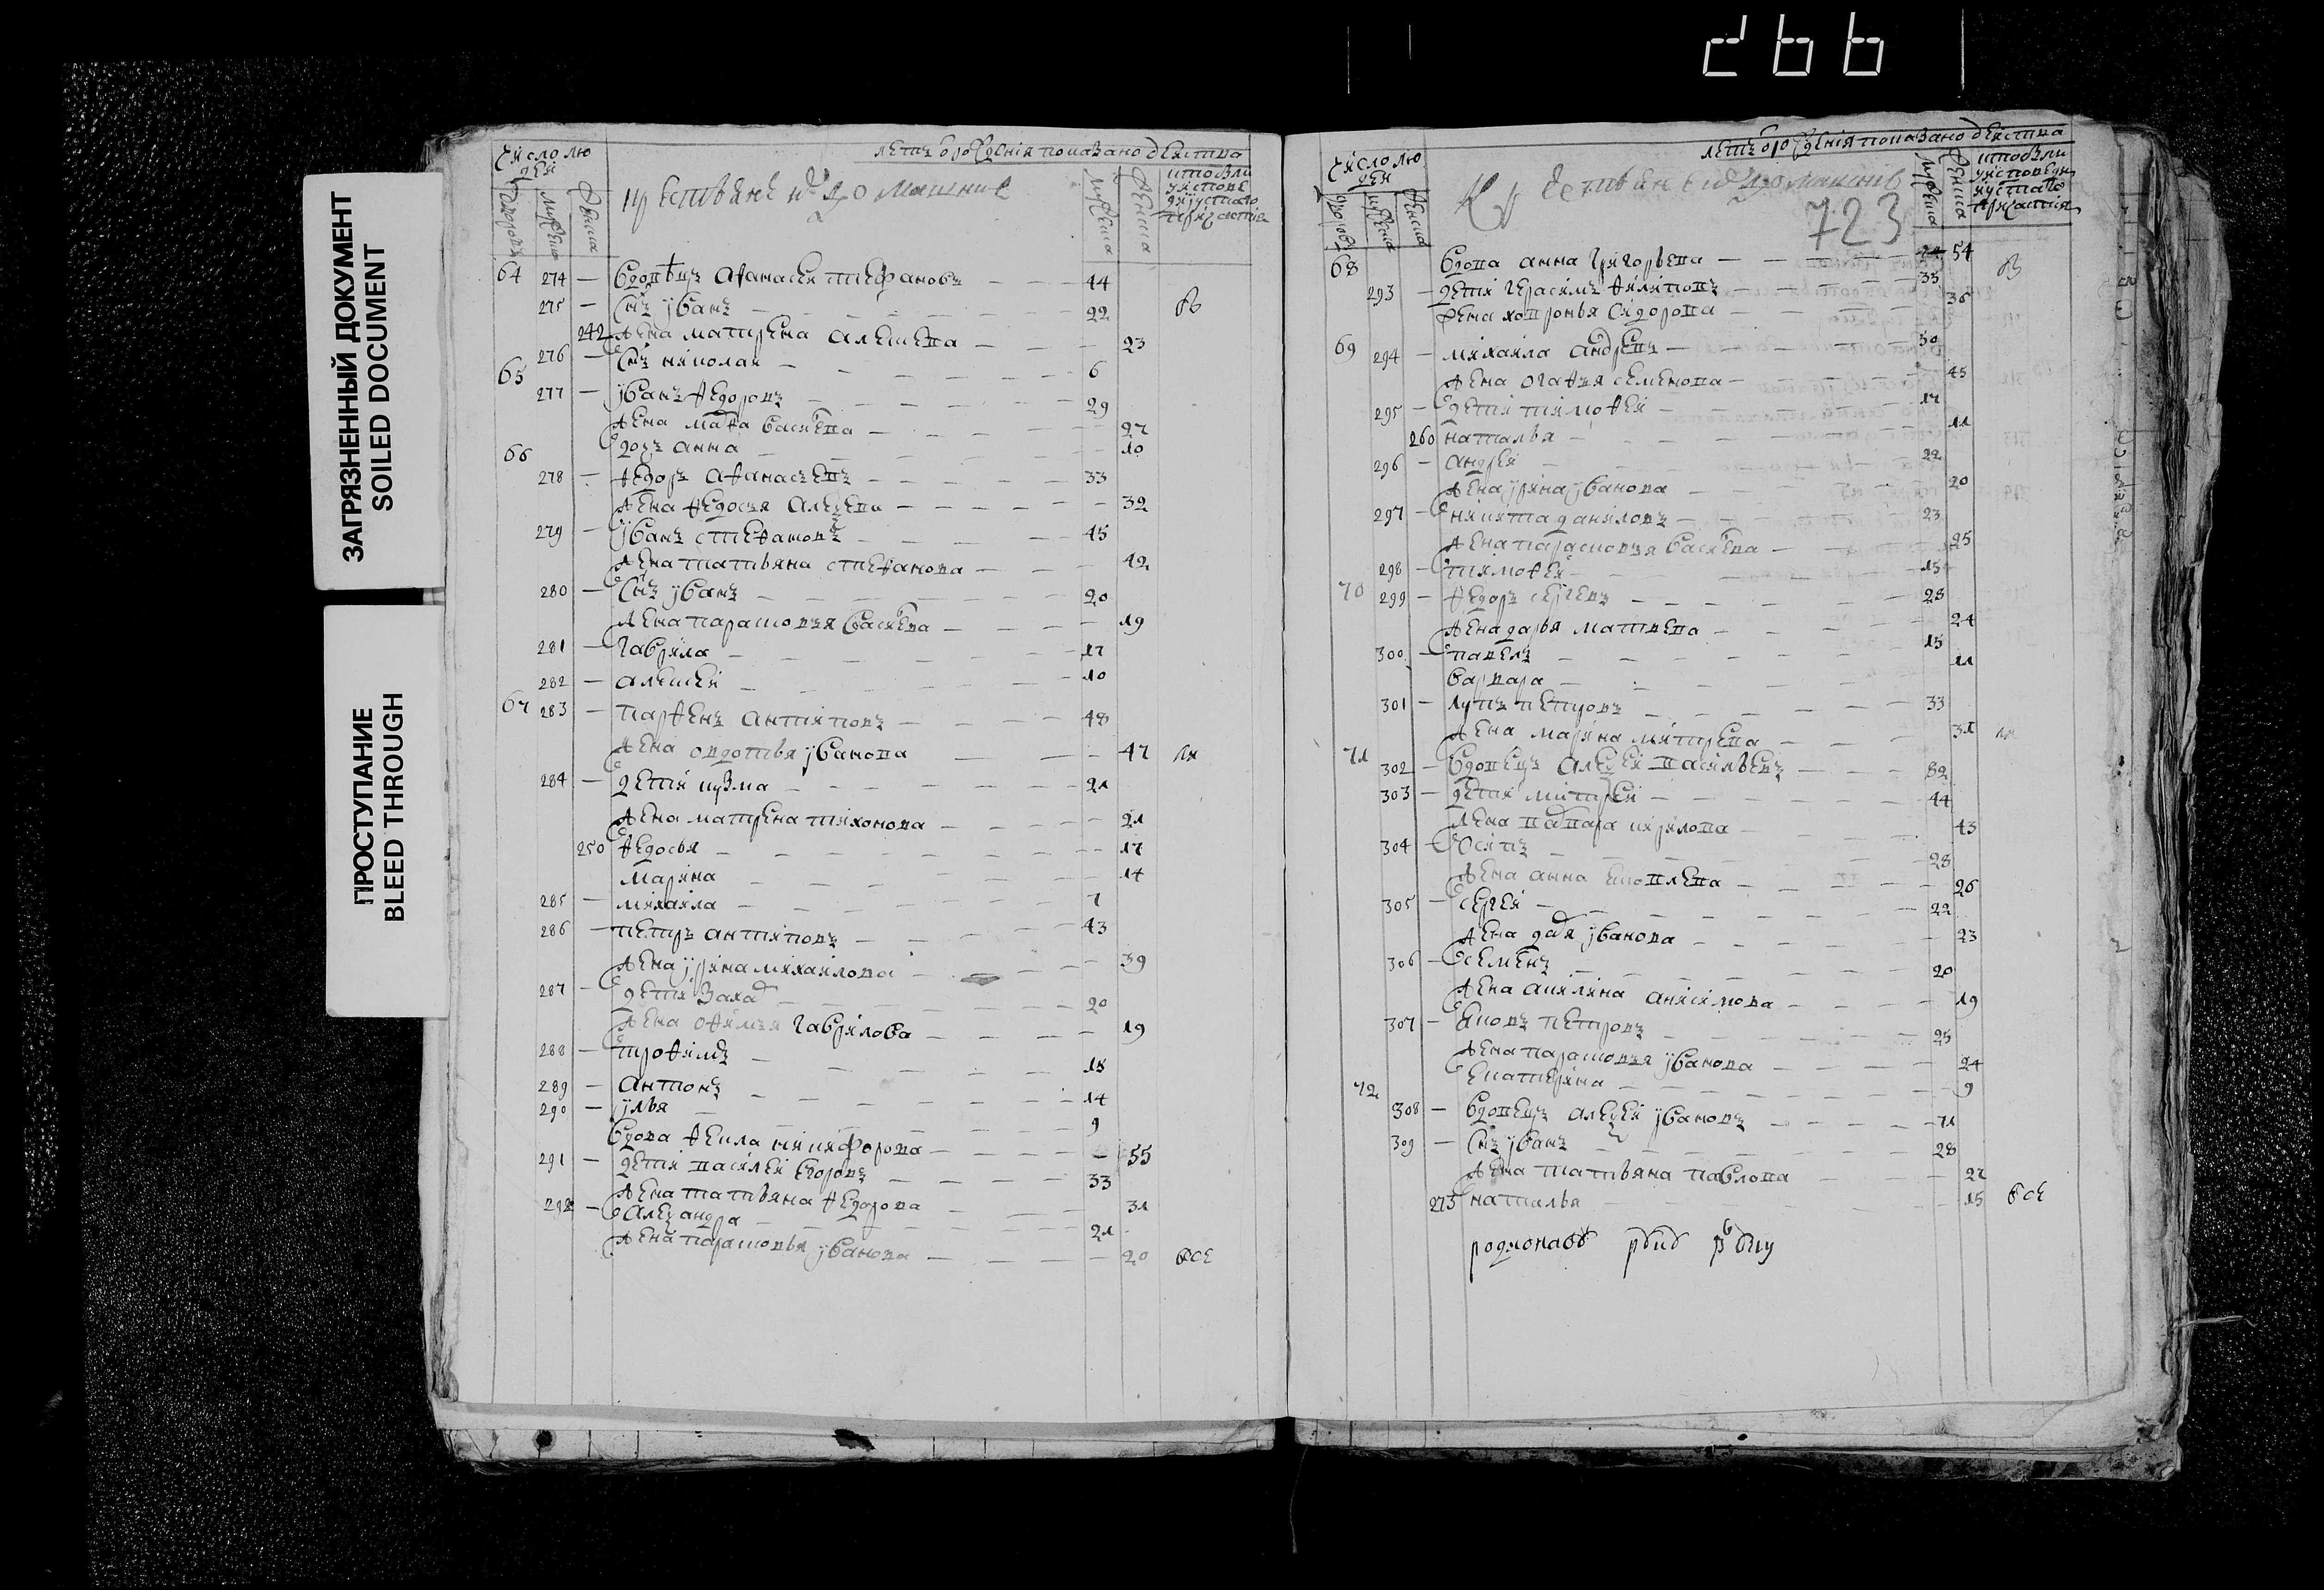 266
ЗАГРЯЗНЕННЫЙ ДОКУМЕНТ
SOILED DOCUMENT
ПРОСТУПАНИЕ
BLEED THROUGH
число лю
дей
дворовъ
мужеска
женска
крестьяне и их домашние
летъ от рождения показано действа
мужеска
женска
64 274 — вдовецъ афанасей стефановъ — 44
275 — снъ иванъ — 22
242 жена матрена алексева — 23
276 — снъ николай — 6
65
277 — иванъ федоровъ — 29
жена марфа василева — 27
дочъ анна — 10
66
278 — федоръ афанасъевъ — 33
жена федосъя алексева — 32
279 — иванъ стефановъ — 45
жена татьяна стефанова — 42
280 — снъ иванъ — 20
жена парасковъя василева — 19
281 — гаврила — 17
282 — алексей — 10
67 283 — парфенъ антиповъ — 48
жена овдотья иванова — 47
284 — дети кузма — 21
жена матрена тихонова — 21
250 федосья — 17
марина — 14
285 — михаила — 7
286 — петръ антиповъ — 43
жена ирина михаилова — 39
287 — дети захар — 20
жена офимъя гаврилова — 19
288 — трофимъ — 18
289 — антонъ — 14
290 — илья — 9
вдова фекла никифорова — 55
291 — дети василей егоровъ — 33
жена татьяна федорова — 31
292 — александра — 21
жена парасковья иванова — 20 все
число лю
дей
дворовъ
мужеска
женска
крестьяне и их домашние
723
летъ от рождения показано действа
мужеска
женска
68 вдова анна григорьева — 54
293 — дети герасимъ филиповъ — 35
жена хавронья сидорова — 36
69 294 — михаила андреевъ — 50
жена огафъя семенова — 45
295 — дети тимофей — 17
260 наталья — 11
296 — андрей — 22
жена ирина иванова — 20
297 — никита даниловъ — 23
жена парасковъя василева — 25
298 — тимофей — 15
70 299 — федоръ сергеевъ — 28
жена дарья матвеева — 24
300 — павелъ — 15
варвара — 11
301 — лупъ петровъ — 33
жена марина митрева — 31
71
302 — вдовецъ алексей васильевъ — 82
303 — дети митрей — 44
жена варвара кирилова — 43
304 — осипъ — 28
жена анна яковлева — 26
305 — сергей — 22
жена дарья иванова — 23
306 — семенъ — 20
жена акилина анисимова — 19
307 — яковъ петровъ — 25
жена парасковъя иванова — 24
екатерина — 9
72
308 — вдовецъ алексей ивановъ — 71
309 — снъ иванъ — 28
жена татьяна павлова — 27
273 наталья — 15 все